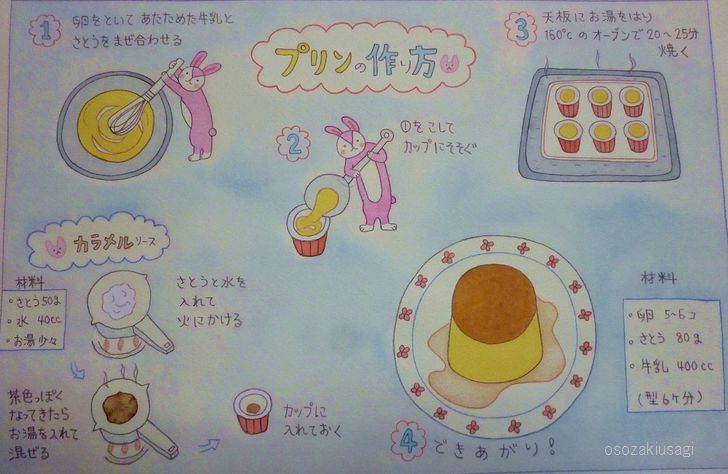 プリンの作り方
1
卵をといて あたためた牛乳と
さとうをまぜ合わせる
2
①をこして
カップにそそぐ
3
天板にお湯をはり
160°Cのオーブンで20~25分
焼く
カラメルソース
材料
・さとう50g
・水 40cc
・お湯少々
さとうと水を
入れて
火にかける
茶色っぽく
なってきたら
お湯を入れて
混ぜる
カップに
入れておく
4
できあがり!
材料
・卵 5~6コ
・さとう 80g
・牛乳 400cc
(型6ケ分)
osozakiusagi